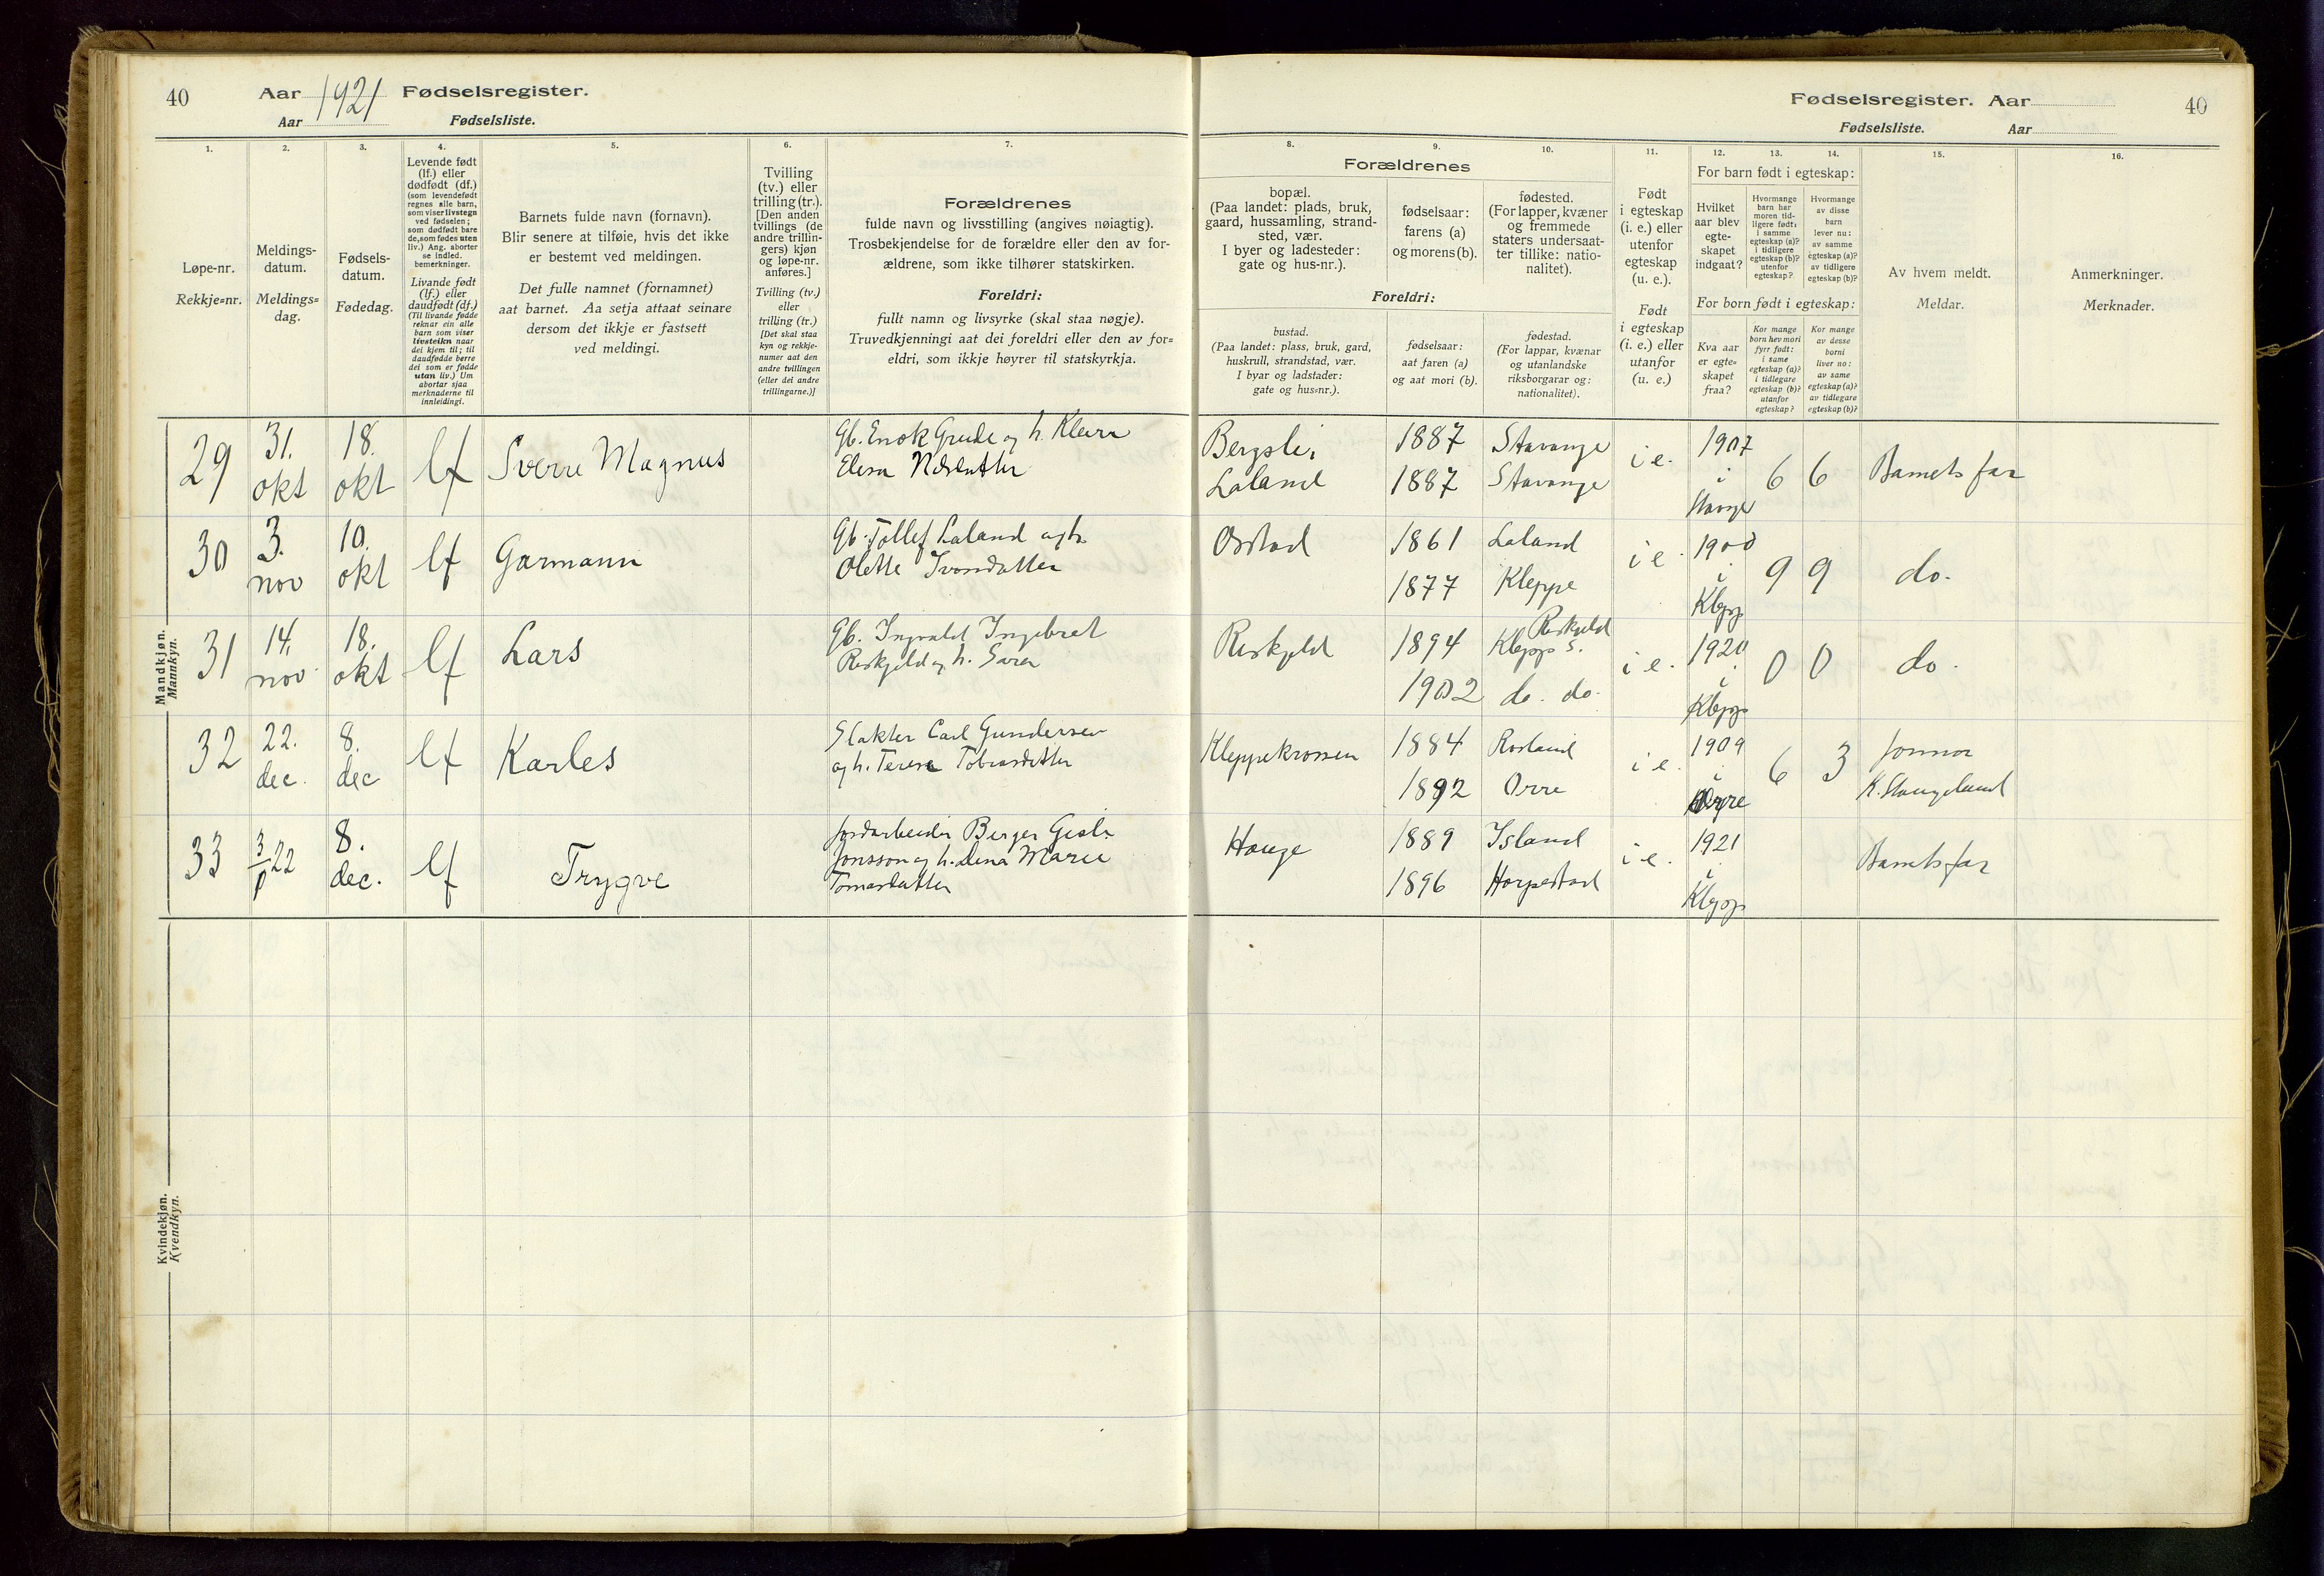 40
Aar 1921 Fødselsregister.
Aar Fødselsliste.
Fødselsregister. Aar
40
Fødselsliste. Aar
1.
Løpe-nr.
Rekkje=nr.
2.
Meldings-
datum.
Meldings=
dag.
3.
Fødsels-
datum.
Fødedag.
4.
Levende født
(lf.) eller
dødfødt (df.)
(som levendefødt
regnes alle barn,
som viser livstegn
ved fødselen;
som dødfødt bare
de, som fødes uten
liv.) Ang. aborter
se indled.
bemerkninger.
Livande født
(lf.) eller
daudfødt (df.)
(Til livande fødde
reknar ein alle
barn som viser
livsteikn naar
dei kjem til; til
daudfødde berre
dei som er fødde
utan liv.) Um
abortar sjaa
merknaderne til
innleidingi.
5.
Barnets fulde navn (fornavn).
Blir senere at tilføie, hvis det ikke
er bestemt ved meldingen.
Det fulle namnet (fornamnet)
aat barnet. Aa setja attaat seinare
dersom det ikkje er fastsett
ved meldingi.
6.
Tvilling
(tv.) eller
trilling (tr.).
[Den anden
tvillings (de
andre trillin-
gers) kjøn
og løpe-nr.
anføres.]
Tvilling (tv.)
eller
trilling (tr.)
[Det skal staa
kyn og rekkje-
numer aat den
andre tvillingen
(eller dei andre
trillingarne.)]
7.
Forældrenes
fulde navn og livsstilling (angives nøiagtig).
Trosbekjendelse for de forældre eller den av for-
ældrene, som ikke tilhører statskirken.
Foreldri:
fullt namn og livsyrke (skal staa nøgje).
Truvedkjenningi aat dei foreldri eller den av for=
eldri, som ikkje høyrer til statskyrkja.
8.
Forældrenes
bopæl.
(Paa landet: plads, bruk,
gaard, hussamling, strand-
sted, vær.
I byer og ladesteder:
gate og hus-nr.).
Foreldri:
bustad.
(Paa landet: plass, bruk, gard,
huskrull, strandstad, vær.
I byar og ladstader:
gate og hus=nr.).
9.
fødselsaar:
farens (a)
og morens (b).
fødselsaar:
aat faren (a)
og aat mori (b).
10.
fødested.
(For lapper, kvæner
og fremmede
staters undersaat-
ter tillike: natio-
nalitet).
fødestad.
(For lappar, kvænar
og utanlandske
riksborgarar og:
nationalitet).
11.
Født
i egteskap
(i. e.) eller
utenfor
egteskap
(u. e.).
Født
i egteskap
(i. e.) eller
utanfor
(u. e.)
12.
13.
14.
For barn født i egteskap:
Hvilket
aar blev
egte-
skapet
indgaat?
Hvormange
barn har
moren tid-
ligere født:
i samme
egteskap (a)?
i tidligere
egteskap (b)?
utenfor
egteskap?
Hvormange
av disse
barn
lever nu:
av samme
egteskap (a)?
av tidligere
egteskap (b)?
For born født i egteskap:
Kva aar
er egte-
skapet
fraa?
Kor mange
born hev mori
fyrr født:
i same
egteskap (a)?
i tidlegare
egteskap (b)?
utanfor
egteskap?
Kor mange
av desse
borni
liver no:
av same
egteskap (a)?
av tidlegare
egteskap (b)?
15.
Av hvem meldt.
Meldar.
16.
Anmerkninger.
Merknader.
Mandkjøn.
Mannkyn.
29
31.
okt
18.
okt
lf
Sverre Magnus
Gb. Enok Grude og h. Klara
Elesa
Bergsli,
Laland
1887
1887
Stavange
Stavange
i e.
1907
i
6
6
Barnets far
30
3.
nov
10.
okt
lf
Garmann
Gb. Tollef Laland og h.
Olette Ivarsdatter
Orstad
1861
1877
Laland
Kleppe
i e.
1900
i
Klepp
9
9
do.
31
14.
nov
18.
okt
lf
Lars
Gb. Ingvald Ingebret
Reskjeld og h. Sara
Reskjeld
1894
1902
Reskjeld
Klepp s.
do. do.
i e.
1920
i
Klepp
0
0
do.
32
22.
dec.
8.
dec
lf
Karles
Slakter Carl Gundersen
og h. Teresa Tobiasdatter
Kleppekrossen
1884
1892
Rosland
Orre
i e.
1909
i
Orre
6
3
Jonmor
K. Stangeland
33
3/1 22
8.
dec.
lf
Trygve
Jordarbeider Berger Gisli
Jonsson og h. Lena Marie
Tomasdatter
Hauge
1889
1896
Island
Horpestad
i e.
1921
i
Klepp
Barnets far
Kvindekjøn.
Kvendkyn.